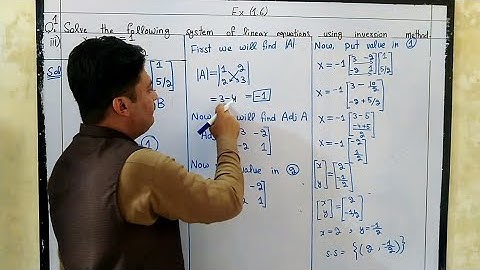 Ex (1.6)
Q.1 Solve the following system of linear equations using inversion method
iii)
Sol
1
5/2
B
①
First we will find |A|
|A| = |1 2
2 3|
= 3 - 4 = -1
Now will find Adj A
3 -2
-2 1
Now value in ②
-2
1
Now, put value in ①
X = -1 [3 -2
-2 1] [1
5/2]
X = -1 [3 - 10/2
-2 + 5/2]
X = -1 [3 - 5
-4+5/2]
[x
y] = [2
-1/2]
[x
y] = [2
-1/2]
x = 2 , y = -1/2
S.S = {(2, -1/2)}